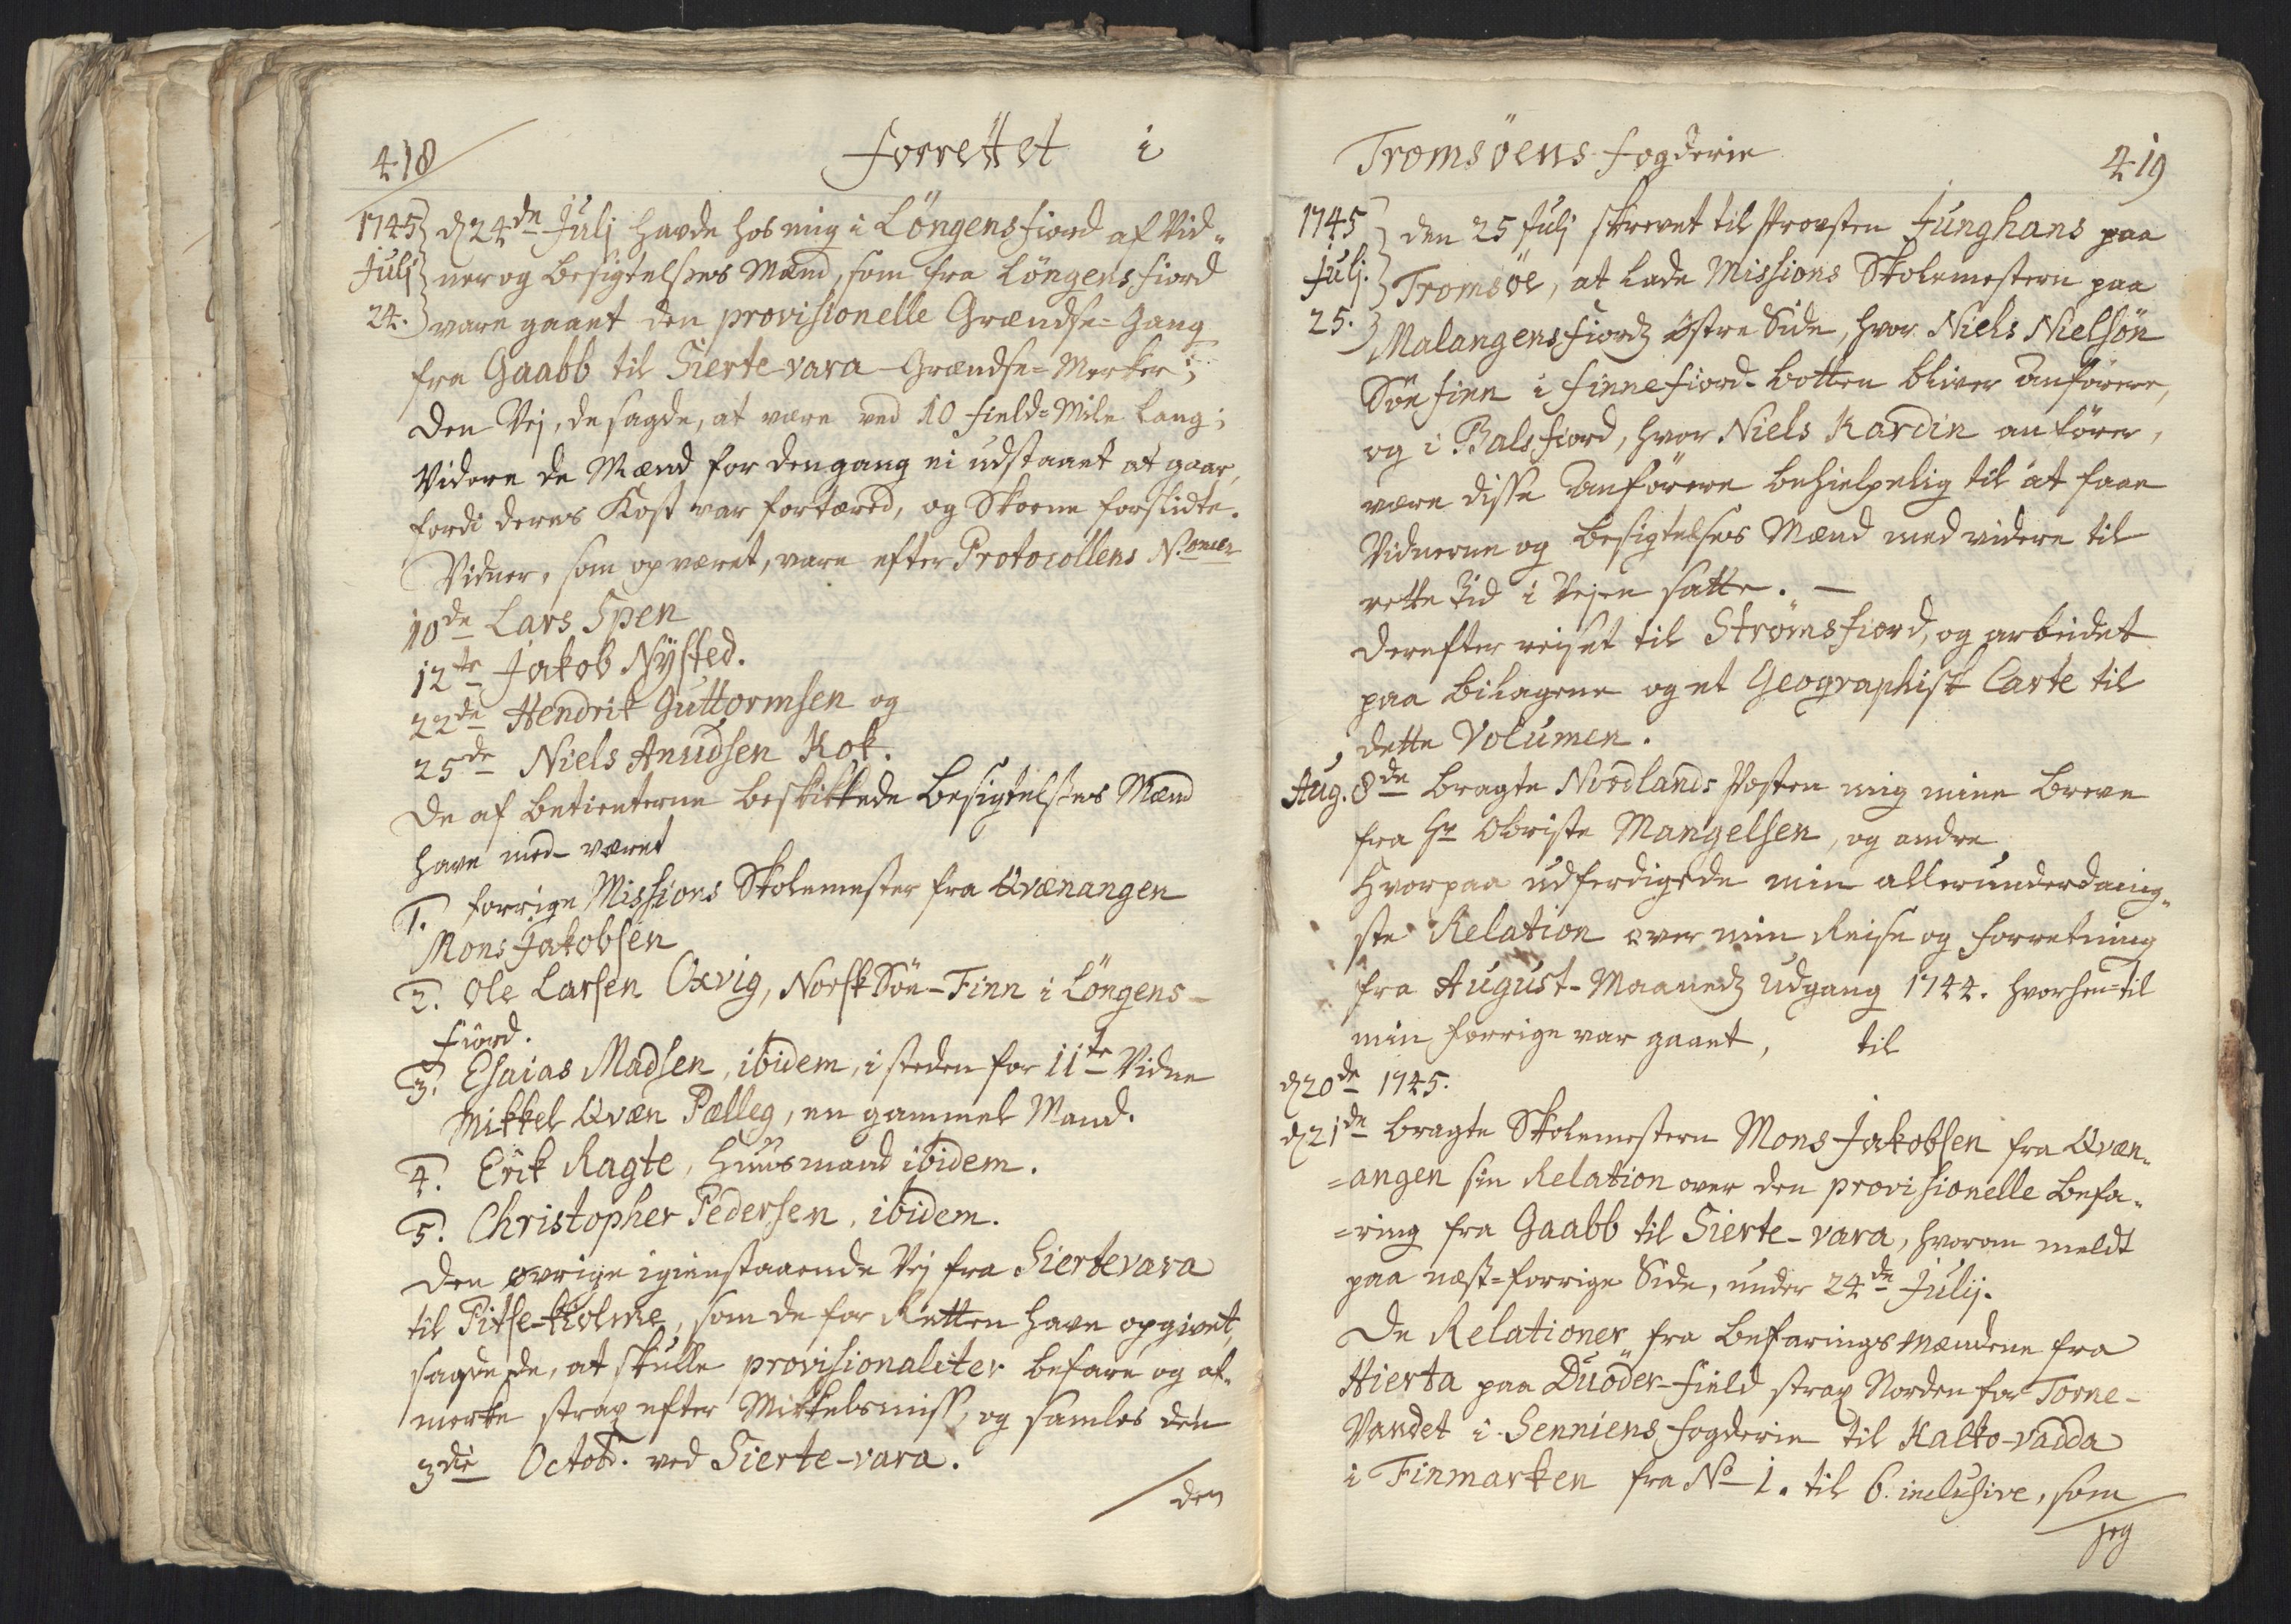 418
forrettet i
1745 d 24de Julj havde hos mig i Löngensfiord af Vid-
Julj ner og Besigtelsens Mænd, som fra Löngensfiord
24. vare gaaet den provisionelle Grændse-Gang
fra Gaabb til Sierte-vara-Grændse-Merker;
den Vej, de sagde, at være ved 10 field-Mile lang;
Videre de Mænd for dengang ei udstaaet at gaae,
fordi deres Kost var fortæred, og Skoene forslidte.
Vidner, som op været, vare efter Protocollens
10de Lars Spen
12te Jakob Nÿsted.
22de Hendrik Guttormsen og
25de Niels Anudsen Kok.
De af Betienterne beskikkede Besigtelsens Mænd
have med-været
1. forrige Missions Skolemester fra Qvænangen
Mons Jakobsen
2. Ole Larsen Oxvig, Norsk Söe-Finn i Löngens-
fiord.
3. Esaias Madsen, ibidem, i steden for 11te Vidne
Mikkel Qvæn Pælleg, en gammel Mand.
4. Erik Ragte, Huusmand ibidem.
5. Christopher Pedersen, ibidem.
Den øvrige igienstaaende Vej fra Siertevara
til Pitse-kiolme, som de for Retten have opgivet,
sagde de, at skulle provisionaliter befare og af-
merke strax efter Mikkelsmiss, og samles den
3die Octobr. ved Sierte-vara.
den
Tromsöens fogderie
419
1745 den 25 Julj skrevet til Provsten Junghans paa
Julj. Tromsöe, at lade Missions Skolemesteren paa
25. Malangensfiords östre Side, hvor Niels Nielsön
Söe finn i finnefiord-botten bliver Anförere,
og i Balsfiord, hvor Niels Kardin anförer,
være disse Anförere behielpelig til at faae
Vidnerne og Besigtelsens Mænd med videre til
rette tid i Vejen satte. —
Derefter reiset til Strömsfiord, og arbeidet
paa Bilagene og et Geographisk Carte til
dette Volumen.
Aug. 8de bragte Nordlands Posten mig mine Breve
fra Hr Obriste Mangelsen, og andre
Hvorpaa udferdigede min allerunderdanig-
ste Relation over min Reise og forretning
fra August-Maaneds Udgang 1744. hvorhen-til
min forrige var gaaet, til
d 20de 1745.
d 21de bragte Skolemesteren Mons Jakobsen fra Qvæn-
=angen sin Relation over den provisionelle Befa-
=ring fra Gaabb til Sierte-vara, hvorom meldt
paa næst-forrige Side, under 24de Julij.
De Relationer fra Befarings Mændene fra
Hierta paa Duöder-field strax Norden for Torne-
Vandet i Senniens fogderie til Kalko-vadda
i Finmarken fra No 1. til 6. inclusive, som
jeg